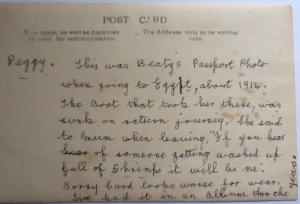 POST CARD
This space as well as back may
be used for communication.
The Address only to be written
here.
Peggy. This was Beaty's Passport Photo
when going to Egypt, about 1914.
The Boat that took her there, was
sunk on return journey. She said
to Mum when leaving, "If you hear
hear of someone getting washed up
full of Shrimps it will be me".
Sorry Card looks worse for wear.
had it in an album thro the
years.